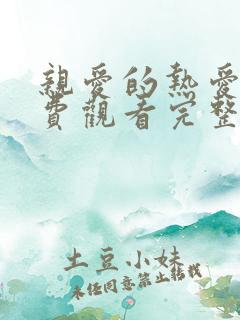 親愛的熱愛
費觀看完整
土豆小妹
未經同意禁止轉載